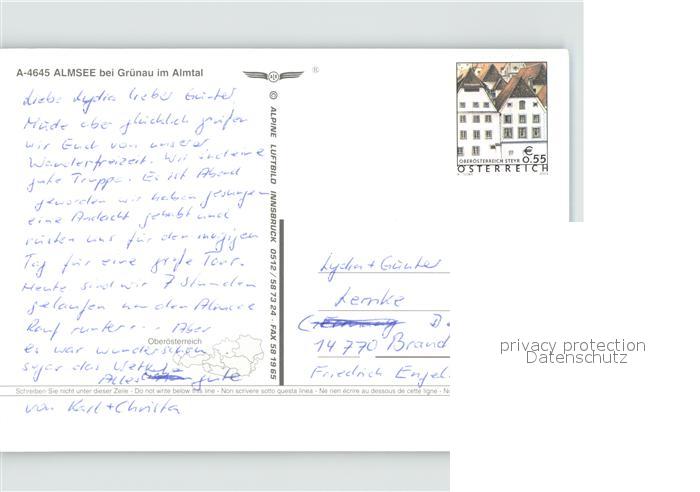 A-4645 ALMSEE bei Grünau im Almtal
Liebe Lydia lieber Günter
Müde aber glücklich grüßen
wir Euch von unserer
Wanderfreizeit. Wir sind eine
gute Truppe. Es ist Abend
geworden wir haben gesungen
eine Andacht gehabt und
rüsten uns für den morgigen
Tag für eine große Tour.
Heute sind wir 7 Stunden
gelaufen um den Almsee
Rauf runter... Aber
es war wunderschön
sogar das Wetter
Alles gute
von Karl + Christa
Oberösterreich
Schreiben Sie nicht unter dieser Zeile - Do not write below this line - Non scrivere sotto questa linea - Ne rien écrire au dessous de cette ligne - N
© ALPINE LUFTBILD INNSBRUCK 0512/58 73 24 · FAX 58 19 65
®
OBERÖSTERREICH STEYR
€ 0,55
ÖSTERREICH
Lydia + Günter
Lemke
14 770 Brand
Friedrich Engel
privacy protection
Datenschutz